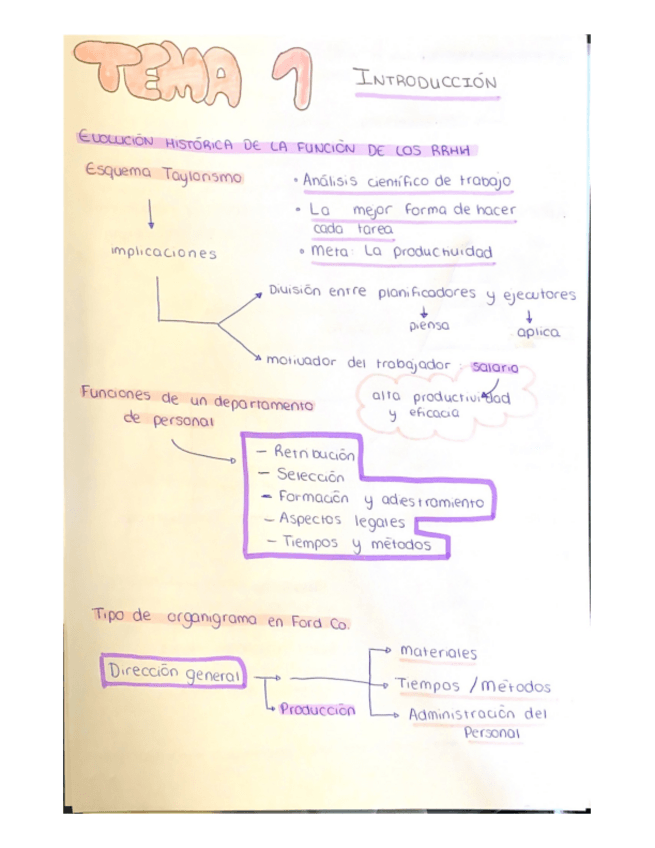 TEMA 1
INTRODUCCIÓN
EVOLUCIÓN HISTÓRICA DE LA FUNCIÓN DE LOS RRHH
Esquema Taylorismo
• Análisis científico de trabajo
• La mejor forma de hacer
cada tarea
• Meta: La productividad
implicaciones
División entre planificadores y ejecutores
piensa
aplica
motivador del trabajador : salario
alta productividad
y eficacia
Funciones de un departamento
de personal
- Retribución
- Selección
- Formación y adestramiento
- Aspectos legales
- Tiempos y métodos
Tipo de organigrama en Ford Co.
Dirección general
Producción
materiales
Tiempos / Métodos
Administración del
Personal